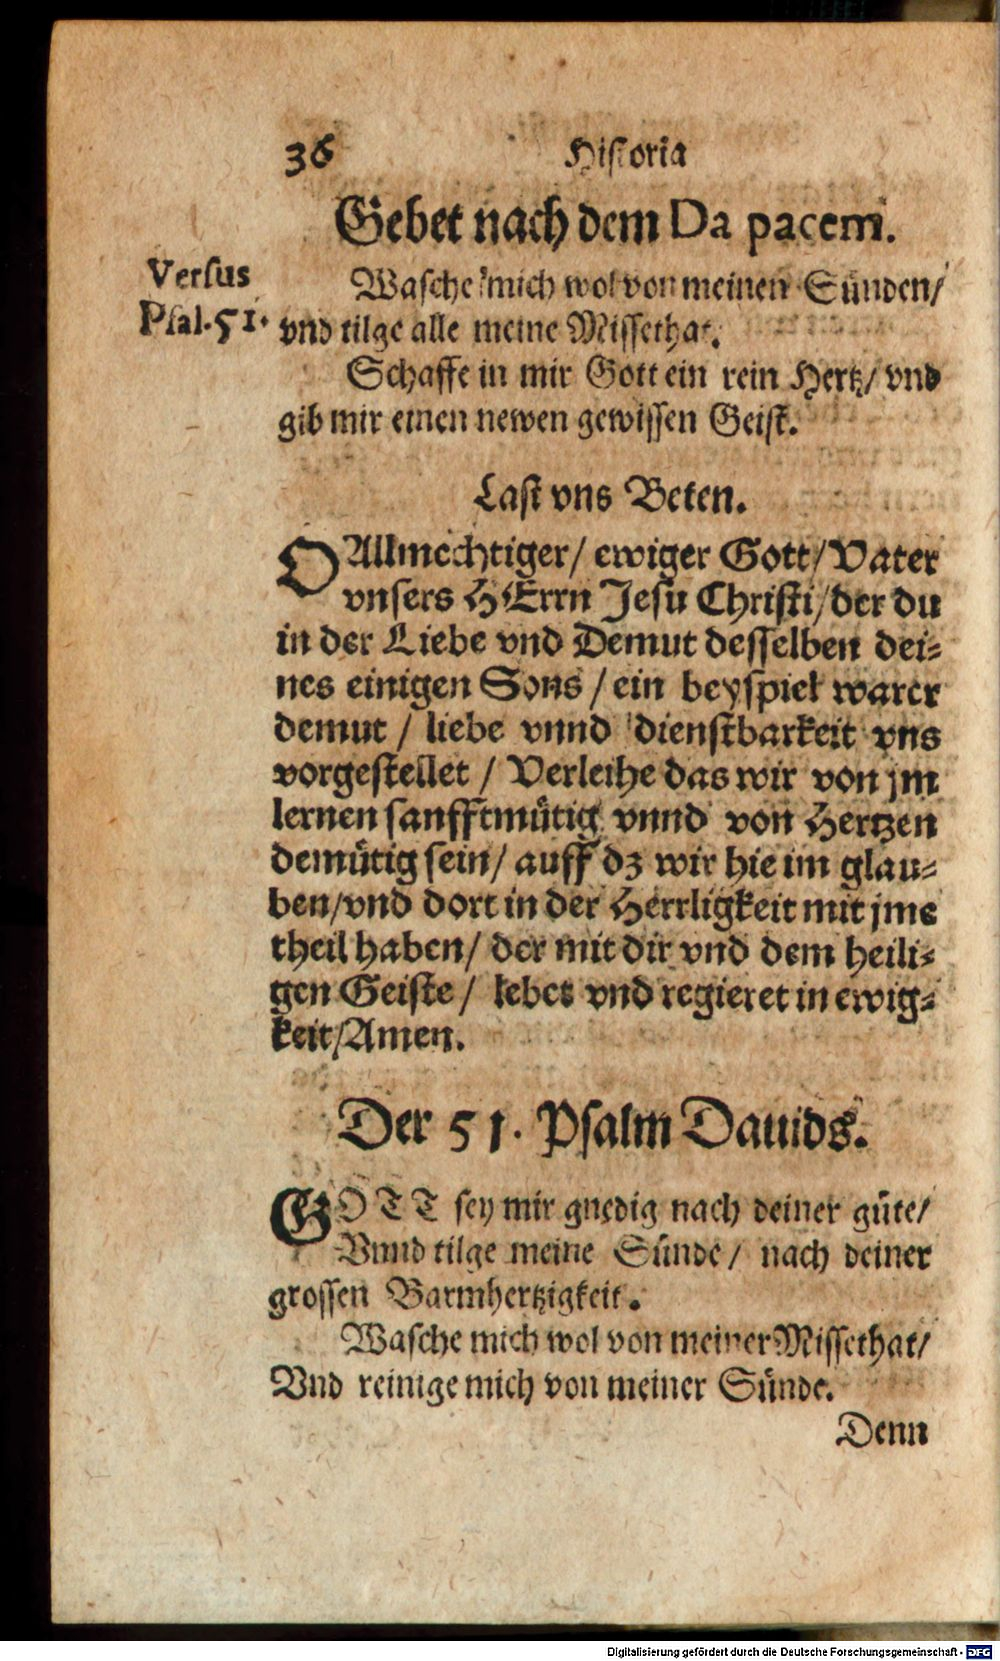 36 Historia
Gebet nach dem Da pacem.
Versus
Psal. 51.
Wasche mich wol von meinen Sünden/
vnd tilge alle meine Missethat.
Schaffe in mir Gott ein rein Hertz/ vnd
gib mir einen newen gewissen Geist.
Last vns Beten.
O Allmechtiger/ ewiger Gott/ Vater
vnsers HErrn Jesu Christi/ der du
in der Liebe vnd Demut desselben dei-
nes einigen Sons / ein beyspiel warer
demut / liebe vnnd dienstbarkeit vns
vorgestellet / Verleihe das wir von jm
lernen sanfftmütig vnnd von Hertzen
demütig sein/ auff dz wir hie im glau-
ben/vnd dort in der Herrligkeit mit jme
theil haben/ der mit dir vnd dem heili-
gen Geiste / lebet vnd regieret in ewig-
keit/Amen.
Der 51. Psalm Dauids.
GOTT sey mir gnędig nach deiner güte/
Vnnd tilge meine Sünde/ nach deiner
grossen Barmhertzigkeit.
Wasche mich wol von meiner Missethat/
Vnd reinige mich von meiner Sünde.
Denn
Digitalisierung gefördert durch die Deutsche Forschungsgemeinschaft - DFG